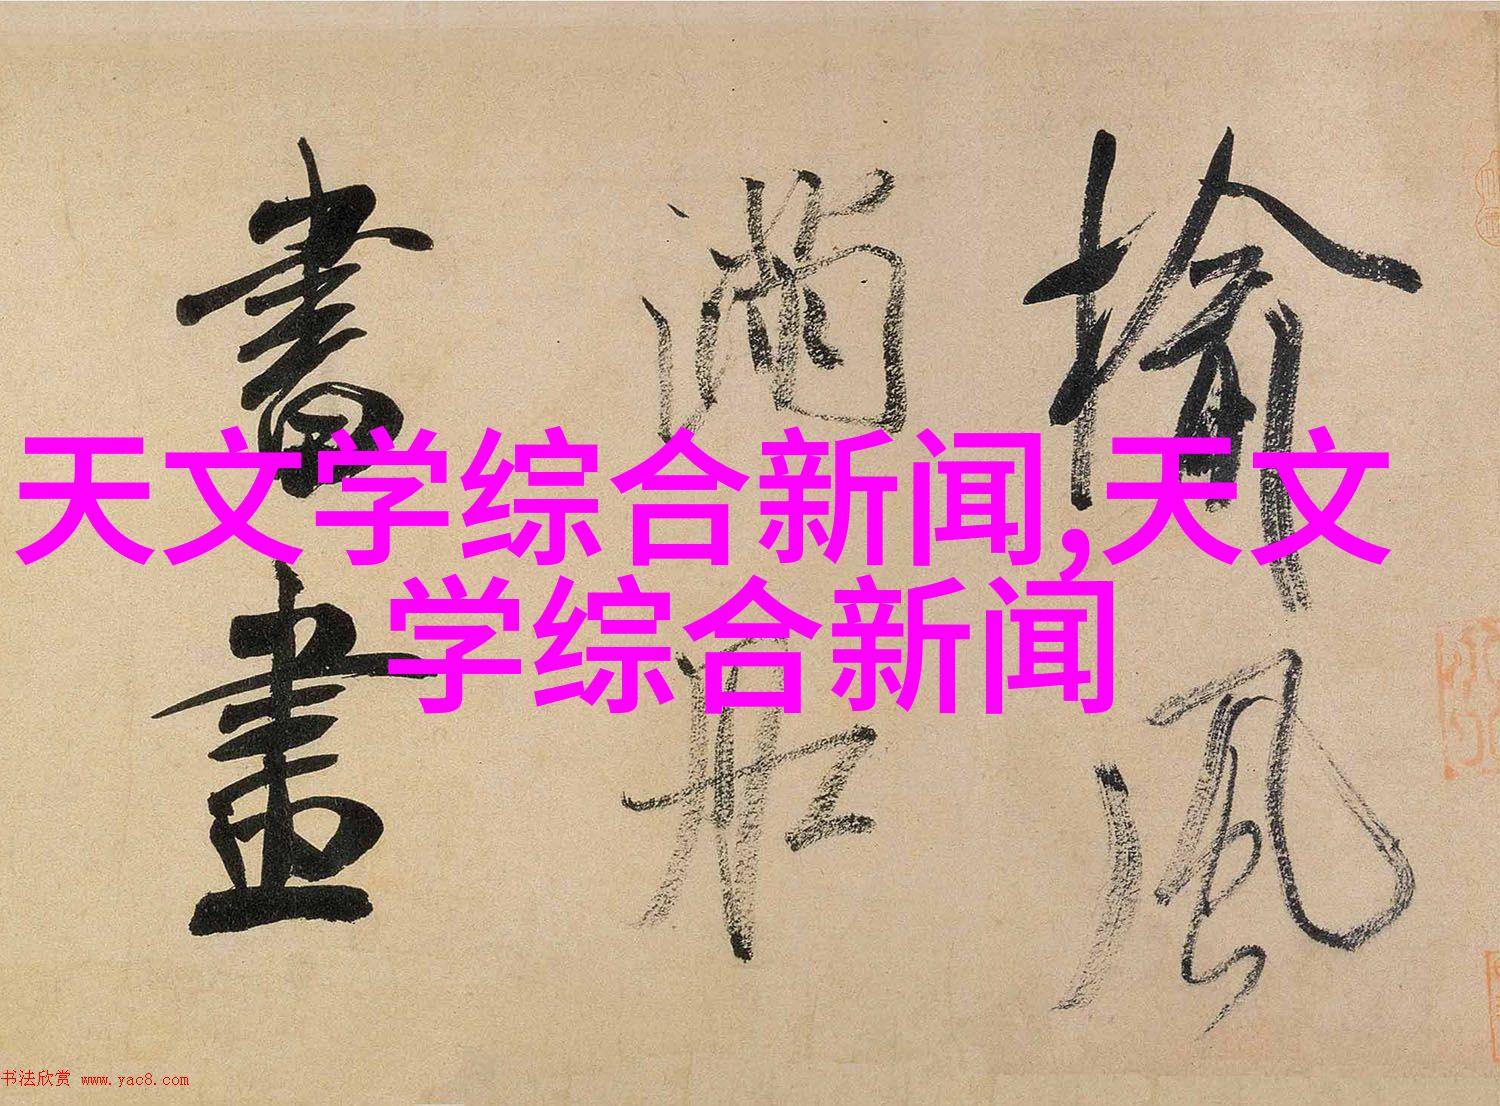 榆風
滿舡
書畫
天文学综合新闻,天文
学综合新闻
书法欣赏 www.yac8.com